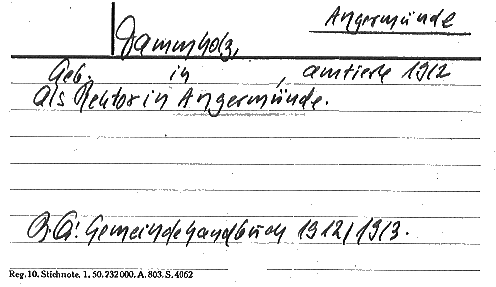 Angermünde
Dammholz,
Geb. in , amtierte 1912
als Rektor in Angermünde.
Q.A: Gemeindehandbuch 1912/1913.
Reg. 10. Stichnote. 1. 50. 232000. A. 803. S. 4062